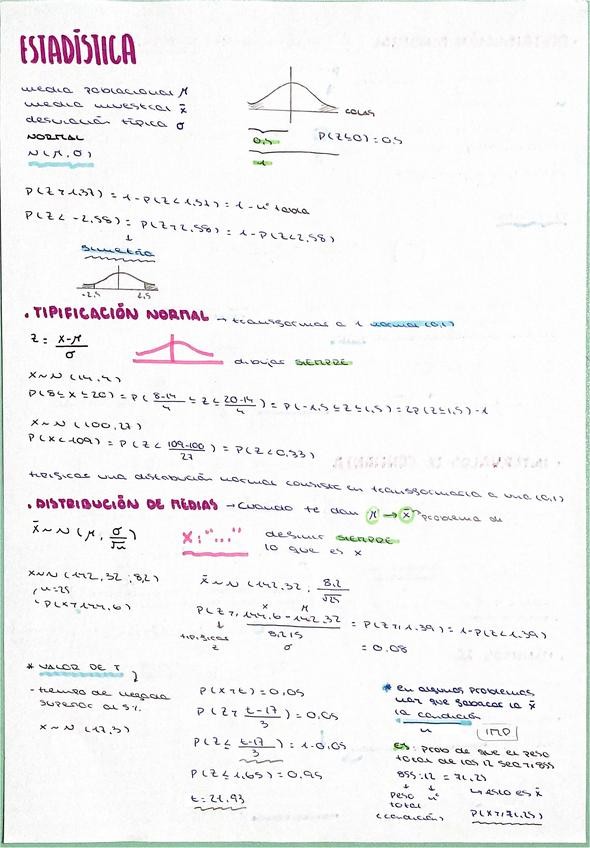 ESTADÍSTICA
media poblacional μ
media muestral x̄
desviación típica σ
NORMAL
N(μ, σ)
colas
0,5 P(Z≤0) = 0,5
1
P(Z>1,37) = 1-P(Z<1,37) = 1-nº tabla
P(Z<-2,58) = P(Z>2,58) = 1-P(Z<2,58)
↓
simetría
-2,5 2,5
. TIPIFICACIÓN NORMAL → transformar a 1 normal (0,1)
Z = x-μ / σ
dibujar SIEMPRE
X~N(14,4)
P(8≤X≤20) = P(8-14/4 ≤ Z ≤ 20-14/4) = P(-1,5≤Z≤1,5) = 2P(Z≤1,5)-1
X~N(100,27)
P(X<109) = P(Z< 109-100/27) = P(Z<0,33)
tipificar una distribución normal consiste en transformarla a una (0,1)
. DISTRIBUCIÓN DE MEDIAS → Cuando te dan μ → x̄ problema de
x̄~N(μ, σ/√n) X: "..." definir SIEMPRE
lo que es x
X~N(142,32 ; 8,2) x̄~N(142,32 ; 8,2/√25)
n=25
P(X>144,6)
P(Z> 144,6-142,32 / 8,2/5) = P(Z>1,39) = 1-P(Z<1,39)
x μ
↓
tipificar σ = 0,08
Z
* VALOR DE T
- tiempo de llegada
superior al 5%
X~N(17,3)
P(X>t) = 0,05
P(Z> t-17/3) = 0,05
P(Z≤ t-17/3) = 1-0,05
P(Z≤1,65) = 0,95
t=21,93
* en algunos problemas
hay que sacar la x̄
la condición
n IMP
ej: prob de que el peso
total de los 12 sea >855
855:12 = 71,25
↓ ↓ ↳ esto es x̄
peso nº
total
(condición) P(X>71,25)